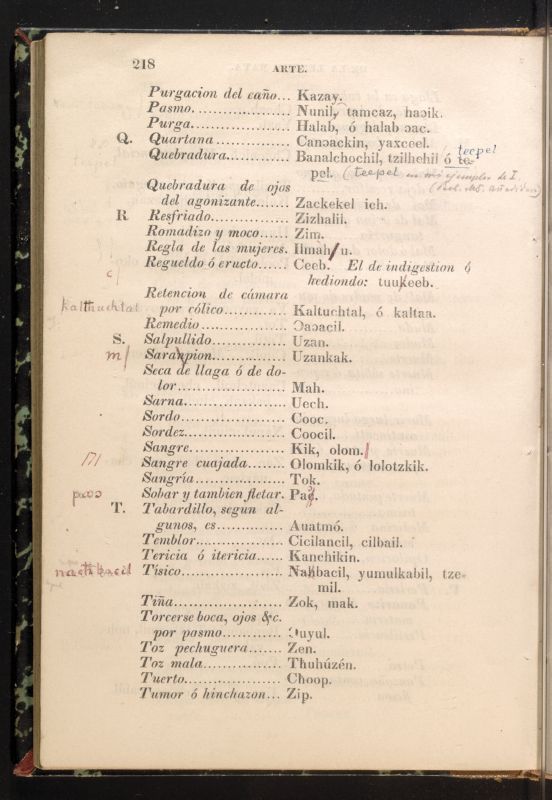 218
ARTE.
Purgacion del caño... Kazay.
Pasmo.................. Nunil, tamcaz, haɔik.
Purga.................. Halab, ó halab ɔac.
Q. Quartana............. Canɔackin, yaxceel.
Quebradura............ Banalchochil, tzilhehil ó te- teepel
pel. (teepel en mis ejemplos de I.
Quebradura de ojos
del agonizante....... Zackekel ich.
R Resfriado.............. Zizhalil.
Romadizo y moco...... Zim.
Regla de las mujeres. Ilmàh/u.
Regueldo ó eructo...... Ceeb. El de indigestion ó
c/ hediondo: tuukeeb.
Retencion de cámara
kaltuchtal por cólico............. Kaltuchtal, ó kaltaa.
Remedio................ Ɔaɔacil.
S. Salpullido............. Uzan.
m/ Saranpion.............. Uzankak.
Seca de llaga ó de do-
lor.................... Mah.
Sarna.................. Uech.
Sordo.................. Cooc.
Sordez................. Coocil.
Sangre................. Kik, olom.
Sangre cuajada....... Olomkik, ó lolotzkik.
Sangría................ Tok.
Sobar y tambien fletar. Paɔ.
T. Tabardillo, segun al-
gunos, es............. Auatmó.
Temblor................ Cicilancil, cilbail.
Tericia ó itericia...... Kanchikin.
Tísico.................. Nakbacil, yumulkabil, tze-
mil.
Tiña................... Zok, mak.
Torcerse boca, ojos &c.
por pasmo........... Ɔuyul.
Toz pechuguera....... Zen.
Toz mala............... Thuhúzén.
Tuerto.................. Choop.
Tumor ó hinchazon... Zip.